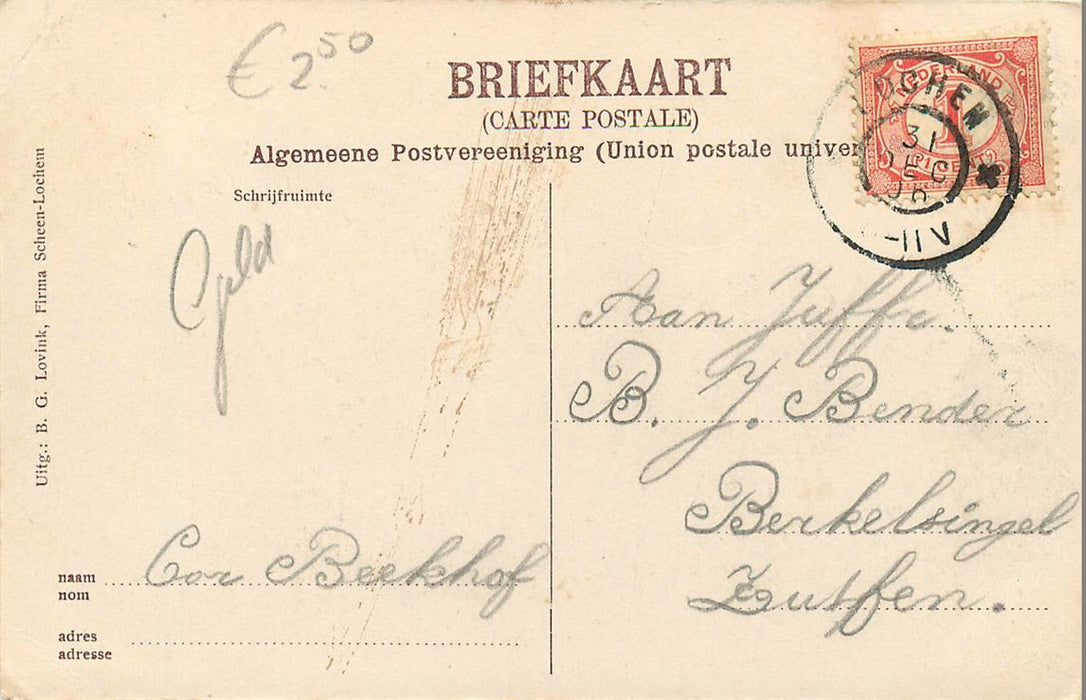 € 2.50
BRIEFKAART
(CARTE POSTALE)
Algemeene Postvereeniging (Union postale univer
NEDERLAND
1
CENT
LOCHEM
31
DEC
06
-11 V
Schrijfruimte
Geld
Uitg.: B. G. Lovink, Firma Scheen-Lochem
Aan Juffr.
B. J. Bender
Berkelsingel
Zutfen.
naam Cor Beekhof
nom
adres
adresse